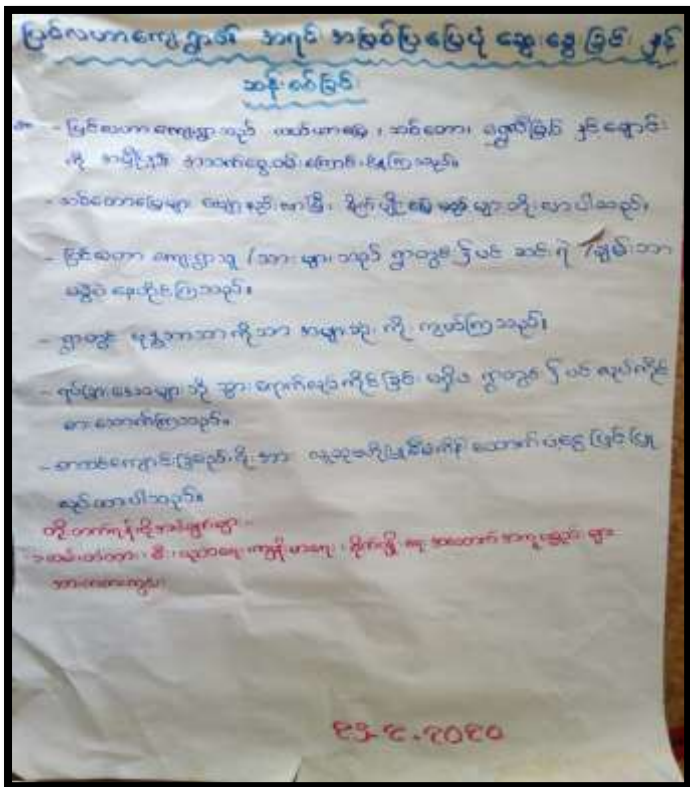 ပြင်လဟာကျေးရွာ၏ အရင်းအမြစ်ပြမြေပုံ ဆွေးနွေးခြင်း နှင့်
ဆန်းစစ်ခြင်း
- ပြင်လဟာကျေးရွာသည် ယာမြေ၊ သစ်တော၊ နှင့် ချောင်း
ကို အမှီပြု၍ အသက်မွေးဝမ်းကြောင်းပြုကြသည်။
- သစ်တောမြေများ လျော့နည်းလာပြီး၊ စိုက်ပျိုးမြေများ တိုးလာပါသည်။
- ပြင်လဟာ ကျေးရွာသူ/သားများသည် ရွာတွင်၌ပင် ဆင်းရဲ/ချမ်းသာ
မခွဲပဲ နေထိုင်ကြသည်။
- ရွာတွင် ဗုဒ္ဓဘာသာကိုသာ အများဆုံး ကိုးကွယ်ကြသည်။
- ရပ်ခြားဒေသများသို့ သွားရောက်လုပ်ကိုင်ခြင်း မရှိပဲ ရွာတွင်၌ပင် လုပ်ကိုင်
စားသောက်ကြသည်။
- စာသင်ကျောင်း တို့အား လူထုအကျိုးပြု စီမံကိန်း ထောက်ပံ့ငွေဖြင့် ပြု
လုပ်ထားပါသည်။
တိုးတက်ရန်လိုအပ်ချက်များ -
တံတား၊ မီး၊ ပညာရေး၊ ကျန်းမာရေး၊ စိုက်ပျိုးရေး အထောက်အကူပစ္စည်းများ
အားကစားကွင်း
၉.၂၀၂၀